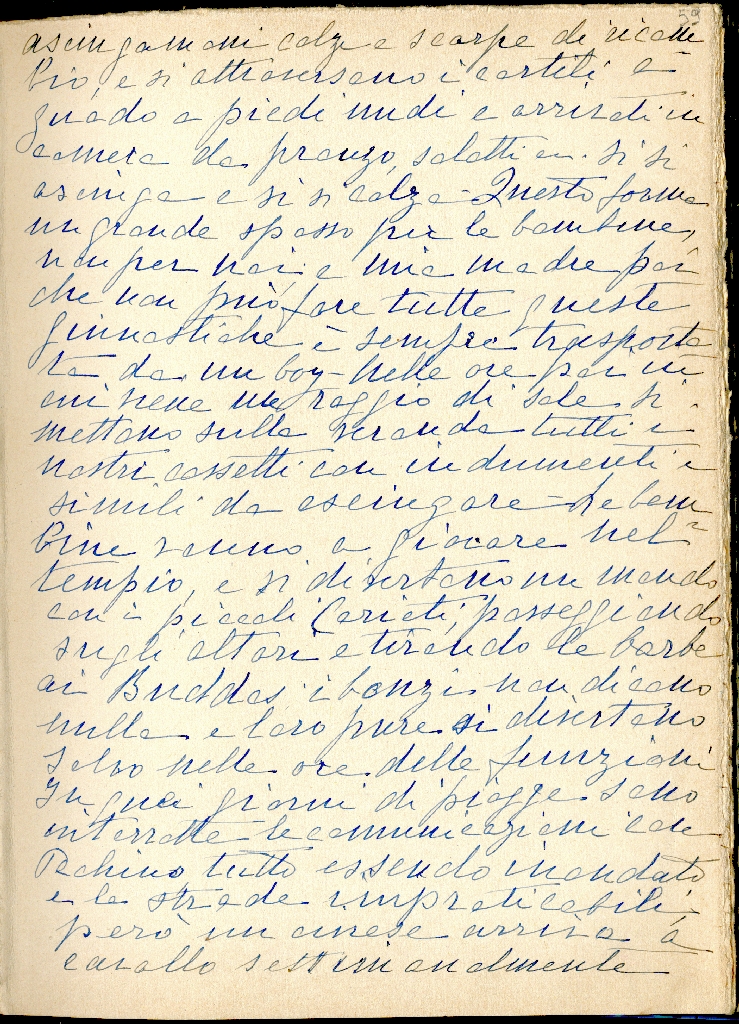 asciugamani calze e scarpe di ricam
bio, e si attraversano i cortili a
guado a piedi nudi e arrivati in
camera da pranzo, salotti ecc. si si
asciuga e si si calza - Questo forma
un grande spasso per le bambine,
non per noi e mia madre poi
che non può fare tutte queste
ginnastiche è sempre trasporta
ta da un boy - Nelle ore poi in
cui viene un raggio di sole si
mettono sulla veranda tutti i
nostri cassetti con indumenti e
simili da asciugare - Le bam
bine vanno a giocare nel
tempio, e si divertono un mondo
con i piccoli passeggiando
sugli altari e tirando le barbe
ai Buddas i bonzi non dicono
nulla e loro pure si divertono
salvo nelle ore delle funzioni
In quei giorni di piogge sono
interrotte le comunicazioni con
Pechino tutto essendo inondato
e le strade impraticabili,
però un cinese arriva a
cavallo settimanalmente